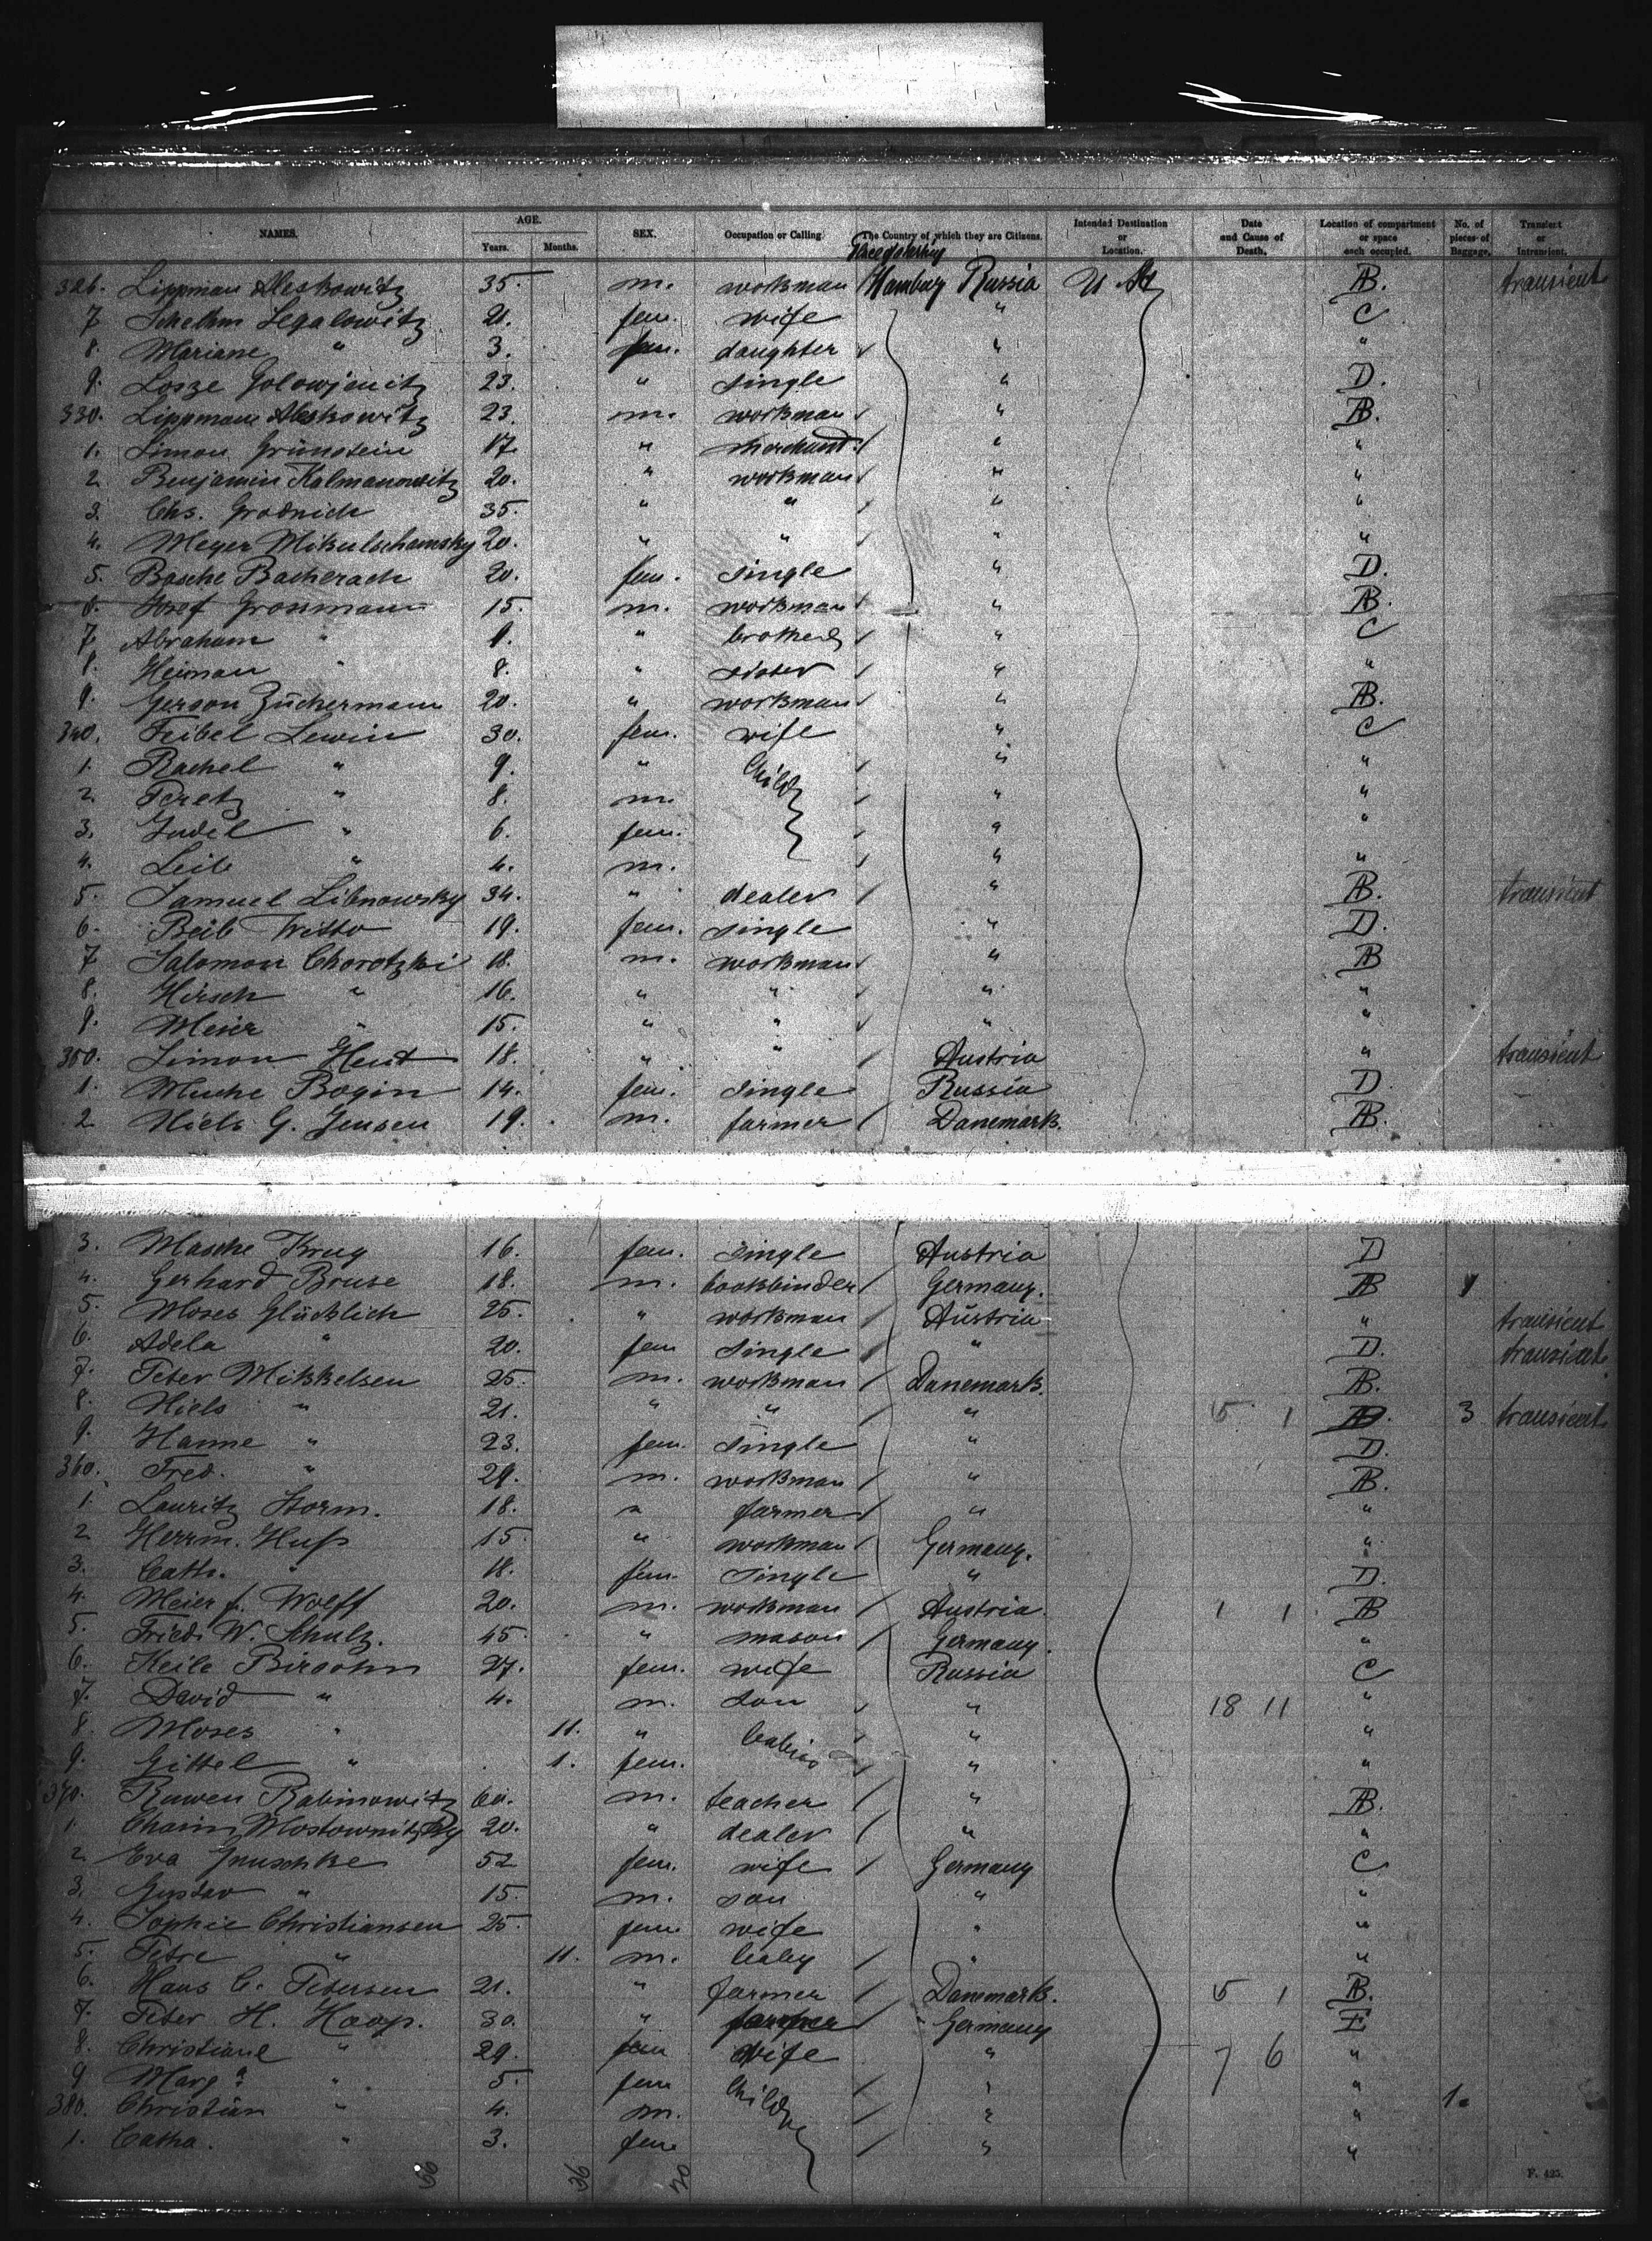 NAMES. AGE. Years. Months. SEX. Occupation or Calling. The Country of which they are Citizens. Intended Destination or Location. Date and Cause of Death. Location of compartment or space each occupied. No. of pieces of Baggage. Transient or Intransient.
326. Lippman Aleskowitz 35. m. workman Hamburg Russia U. St. AB. transient
7. Schelhm Segalowitz 21. fem. wife " C
8. Mariane " 3. fem. daughter " "
9. Losze Golowjenitz 23. " single " D.
330. Lippman Aleskowitz 23. m. workman " AB.
1. Simon Grünstein 17. " merchant " "
2. Benjamin Kalmanowitz 20. " workman " "
3. Chs. Grodnick 35. " " " "
4. Meyer Mikulschansky 20. " " " "
5. Basche Bacherach 20. fem. single " D.
6. Josef Grossmann 15. m. workman " AB.
7. Abraham " 9. " brother " C
8. Heiman " 8. " sister " "
9. Gerson Zückermann 20. " workman " AB.
340. Feibel Lewin 30. fem. wife " C
1. Rachel " 9. " Child " "
2. Peretz " 8. m. " "
3. Judel " 6. fem. " "
4. Leib " 4. m. " "
5. Samuel Libnowsky 34. " dealer " AB. transient
6. Beib Witto 19. fem. single " D.
7. Salomon Chorotzki 18. m. workman " AB
8. Hirsch " 16. " " " "
9. Meier " 15. " " " "
350. Simon Heut 18. " " Austria " transient
1. Muche Bogin 14. fem. single Russia D.
2. Niels G. Jensen 19. m. farmer Danemark. AB.
3. Masche Krug 16. fem. single Austria D
4. Gerhard Bruse 18. m. bookbinder Germany. AB
5. Moses Glücklich 25. " workman Austria " transient
6. Adela " 20. fem single " D. transient
7. Peter Mikkelsen 25. m. workman Danemark. AB.
8. Niels " 21. " " " 5 1 AB. 3 transient
9. Hanne " 23. fem. single " D.
360. Fred. " 29. m. workman " AB.
1. Lauritz Storm. 18. " farmer " "
2. Herrm. Huß 15 " workman Germany. "
3. Cath. " 18. fem. single " D.
4. Meier J. Wolff 20. m. workman Austria. 1 1 AB
5. Friedr W. Schulz. 45. " mason Germany. "
6. Keile Birsohn 27. fem. wife Russia C
7. David " 4. m. son " 18 11 "
8. Moses " 11. " babies " "
9. Gittel " 1. fem. " "
370. Ruwen Rabinowitz 60. m. teacher " AB.
1. Chaim Mostownitzky 20. " dealer " "
2. Eva Jnuschke 52 fem. wife Germany C
3. Gustav " 15. m. son " "
4. Sophie Christiansen 25. fem. wife " "
5. Petre " 11. m. baby " "
6. Hans C. Petersen 21. " farmer Danemark. 5 1 AB.
7. Peter H. Hoop. 30. " farmer Germany E
8. Christiane " 29. fem wife " 7 6 "
9. Marg. " 5. fem Child " "
380. Christian " 4. m. " " 1.
1. Catha. " 3. fem " "
36
F. 425.